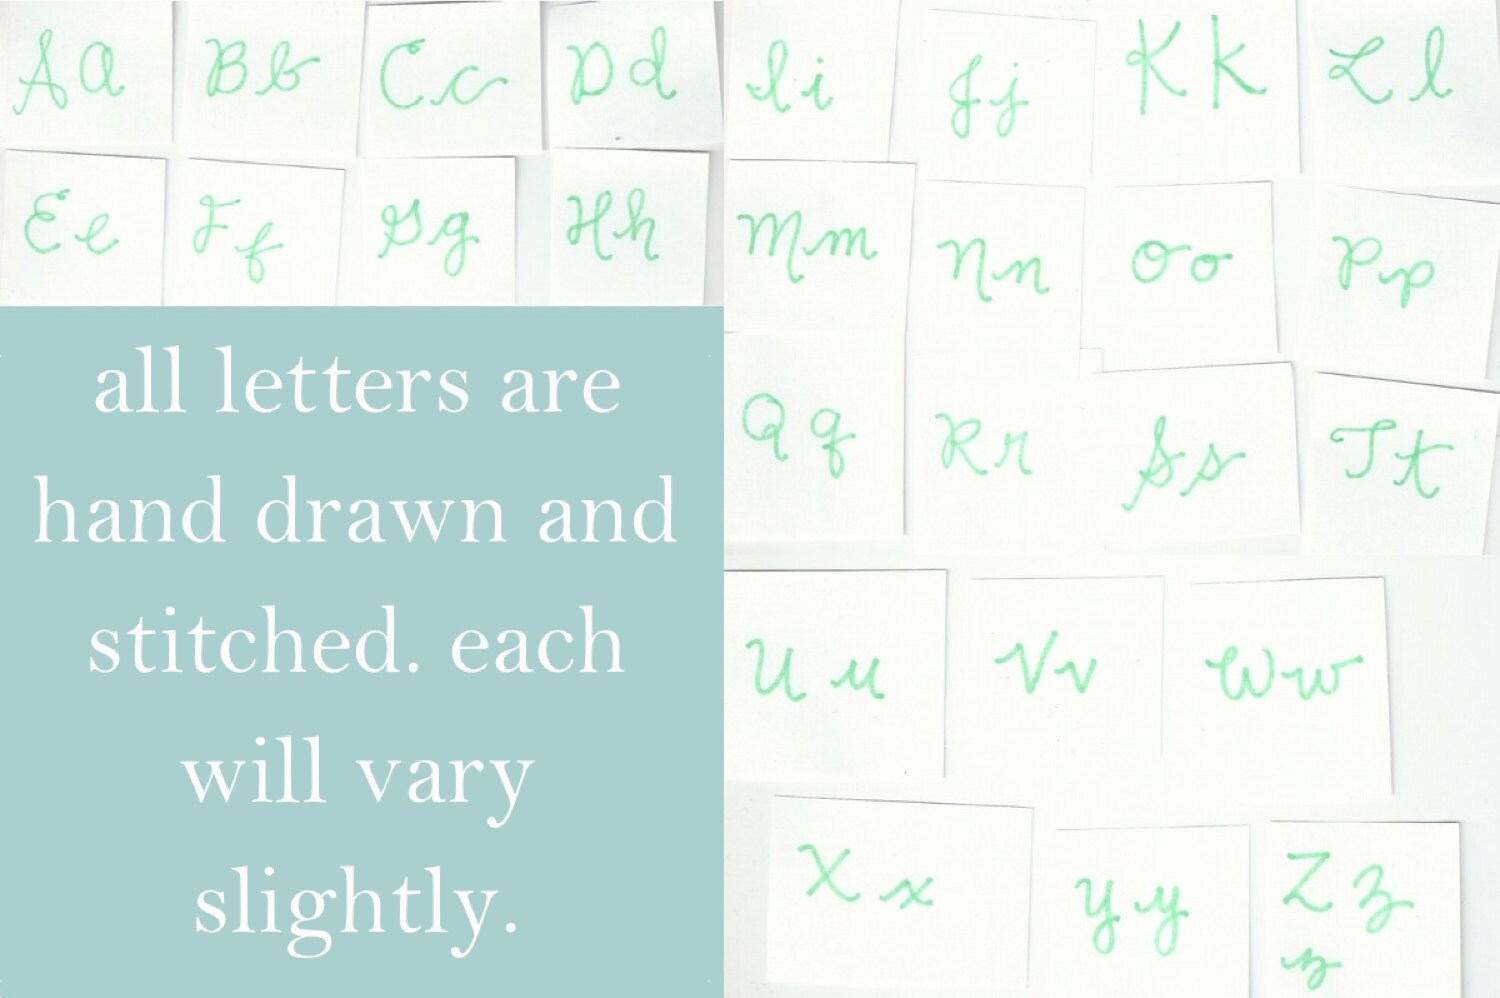 Aa Bb Cc Dd
Ee Ff Gg Hh
all letters are
hand drawn and
stitched. each
will vary
slightly.
Ii Jj Kk Ll
Mm Nn Oo Pp
Qq Rr Ss Tt
Uu Vv Ww
Xx Yy Zz
z